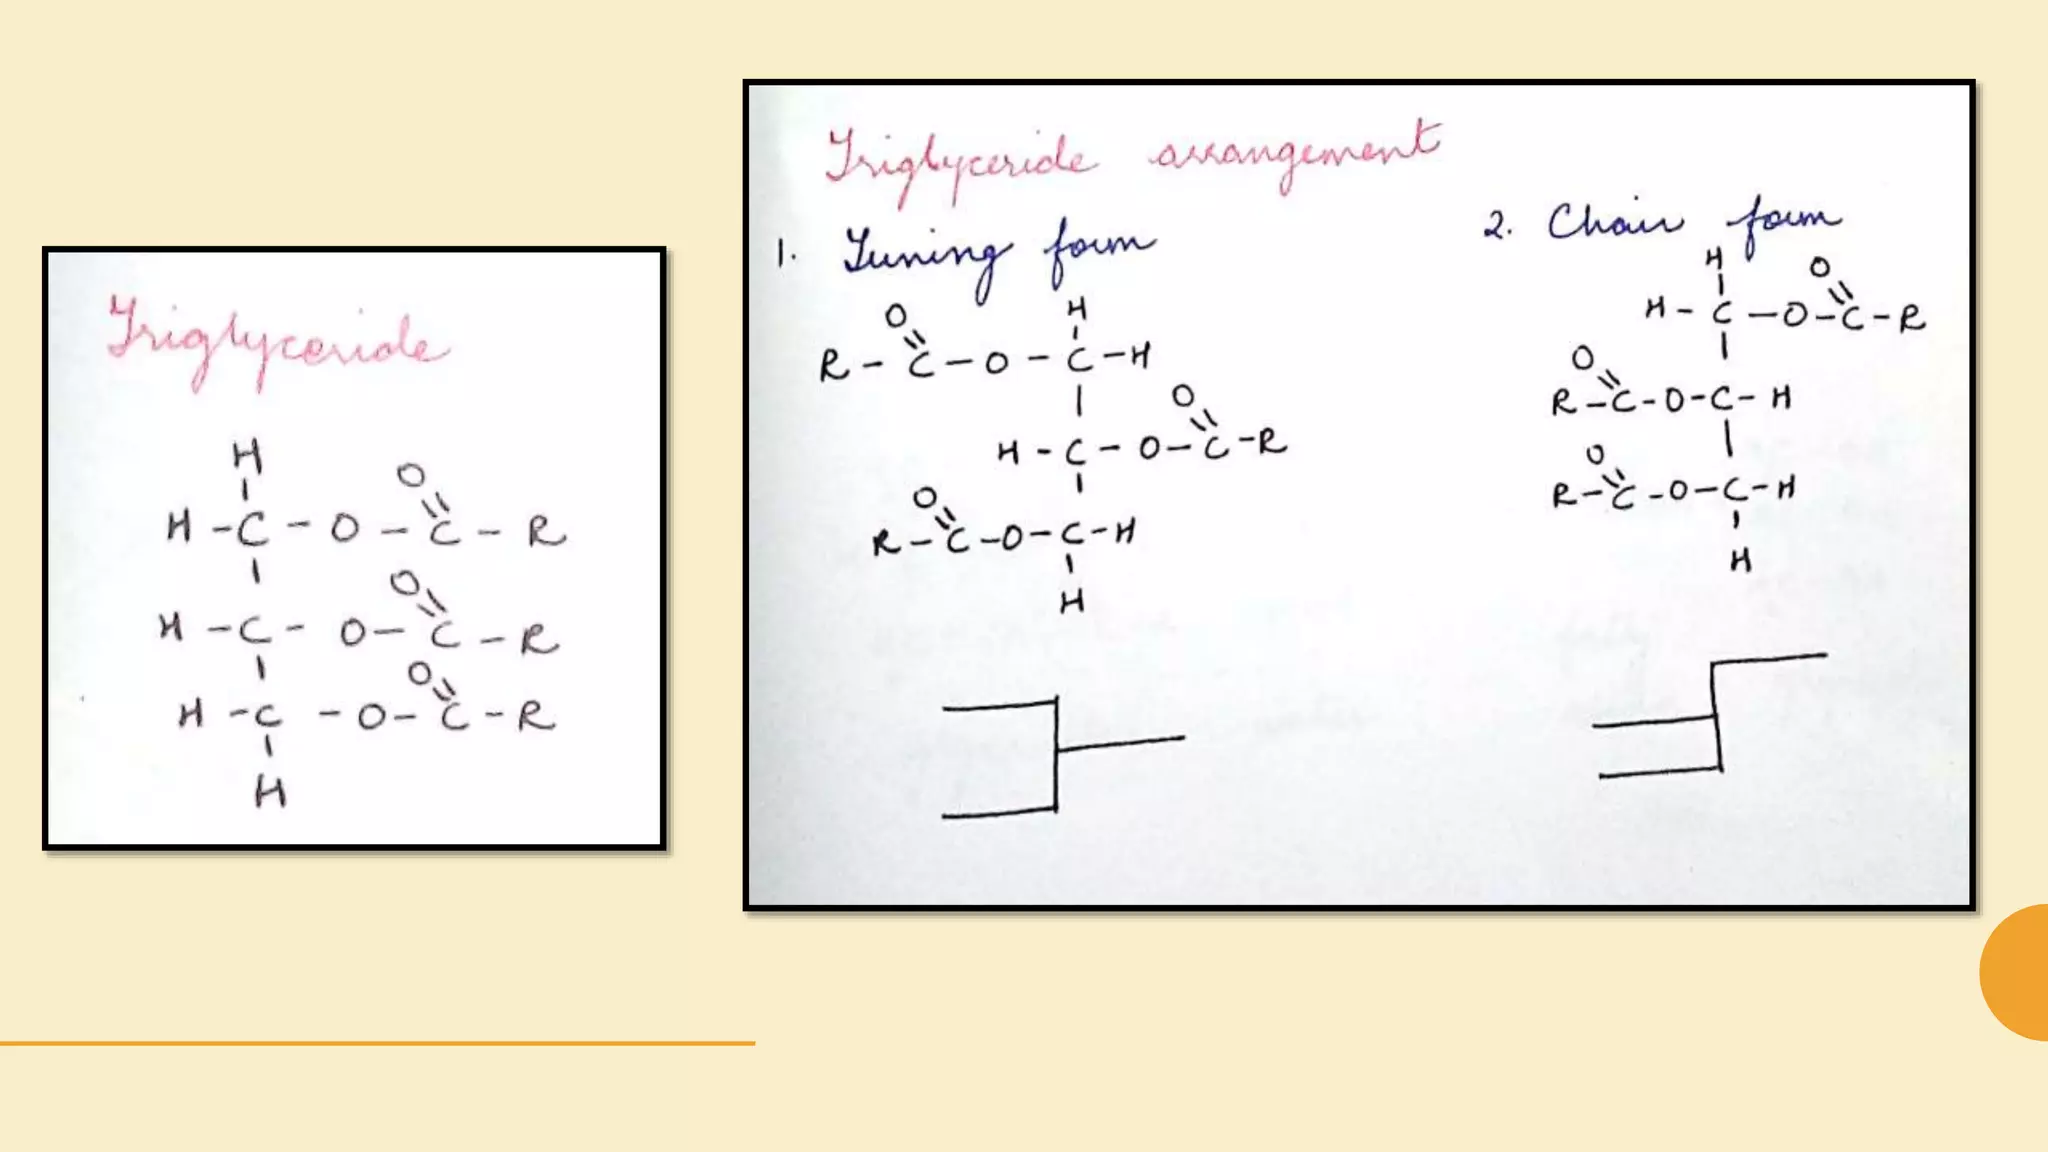 Triglyceride
H
O
H - C - O - C - R
O
H - C - O - C - R
O
H - C - O - C - R
H
Triglyceride arrangement
1. Tuning form
O
H
R - C - O - C - H
O
H - C - O - C - R
O
R - C - O - C - H
H
2. Chair form
H
O
H - C - O - C - R
O
R - C - O - C - H
O
R - C - O - C - H
H